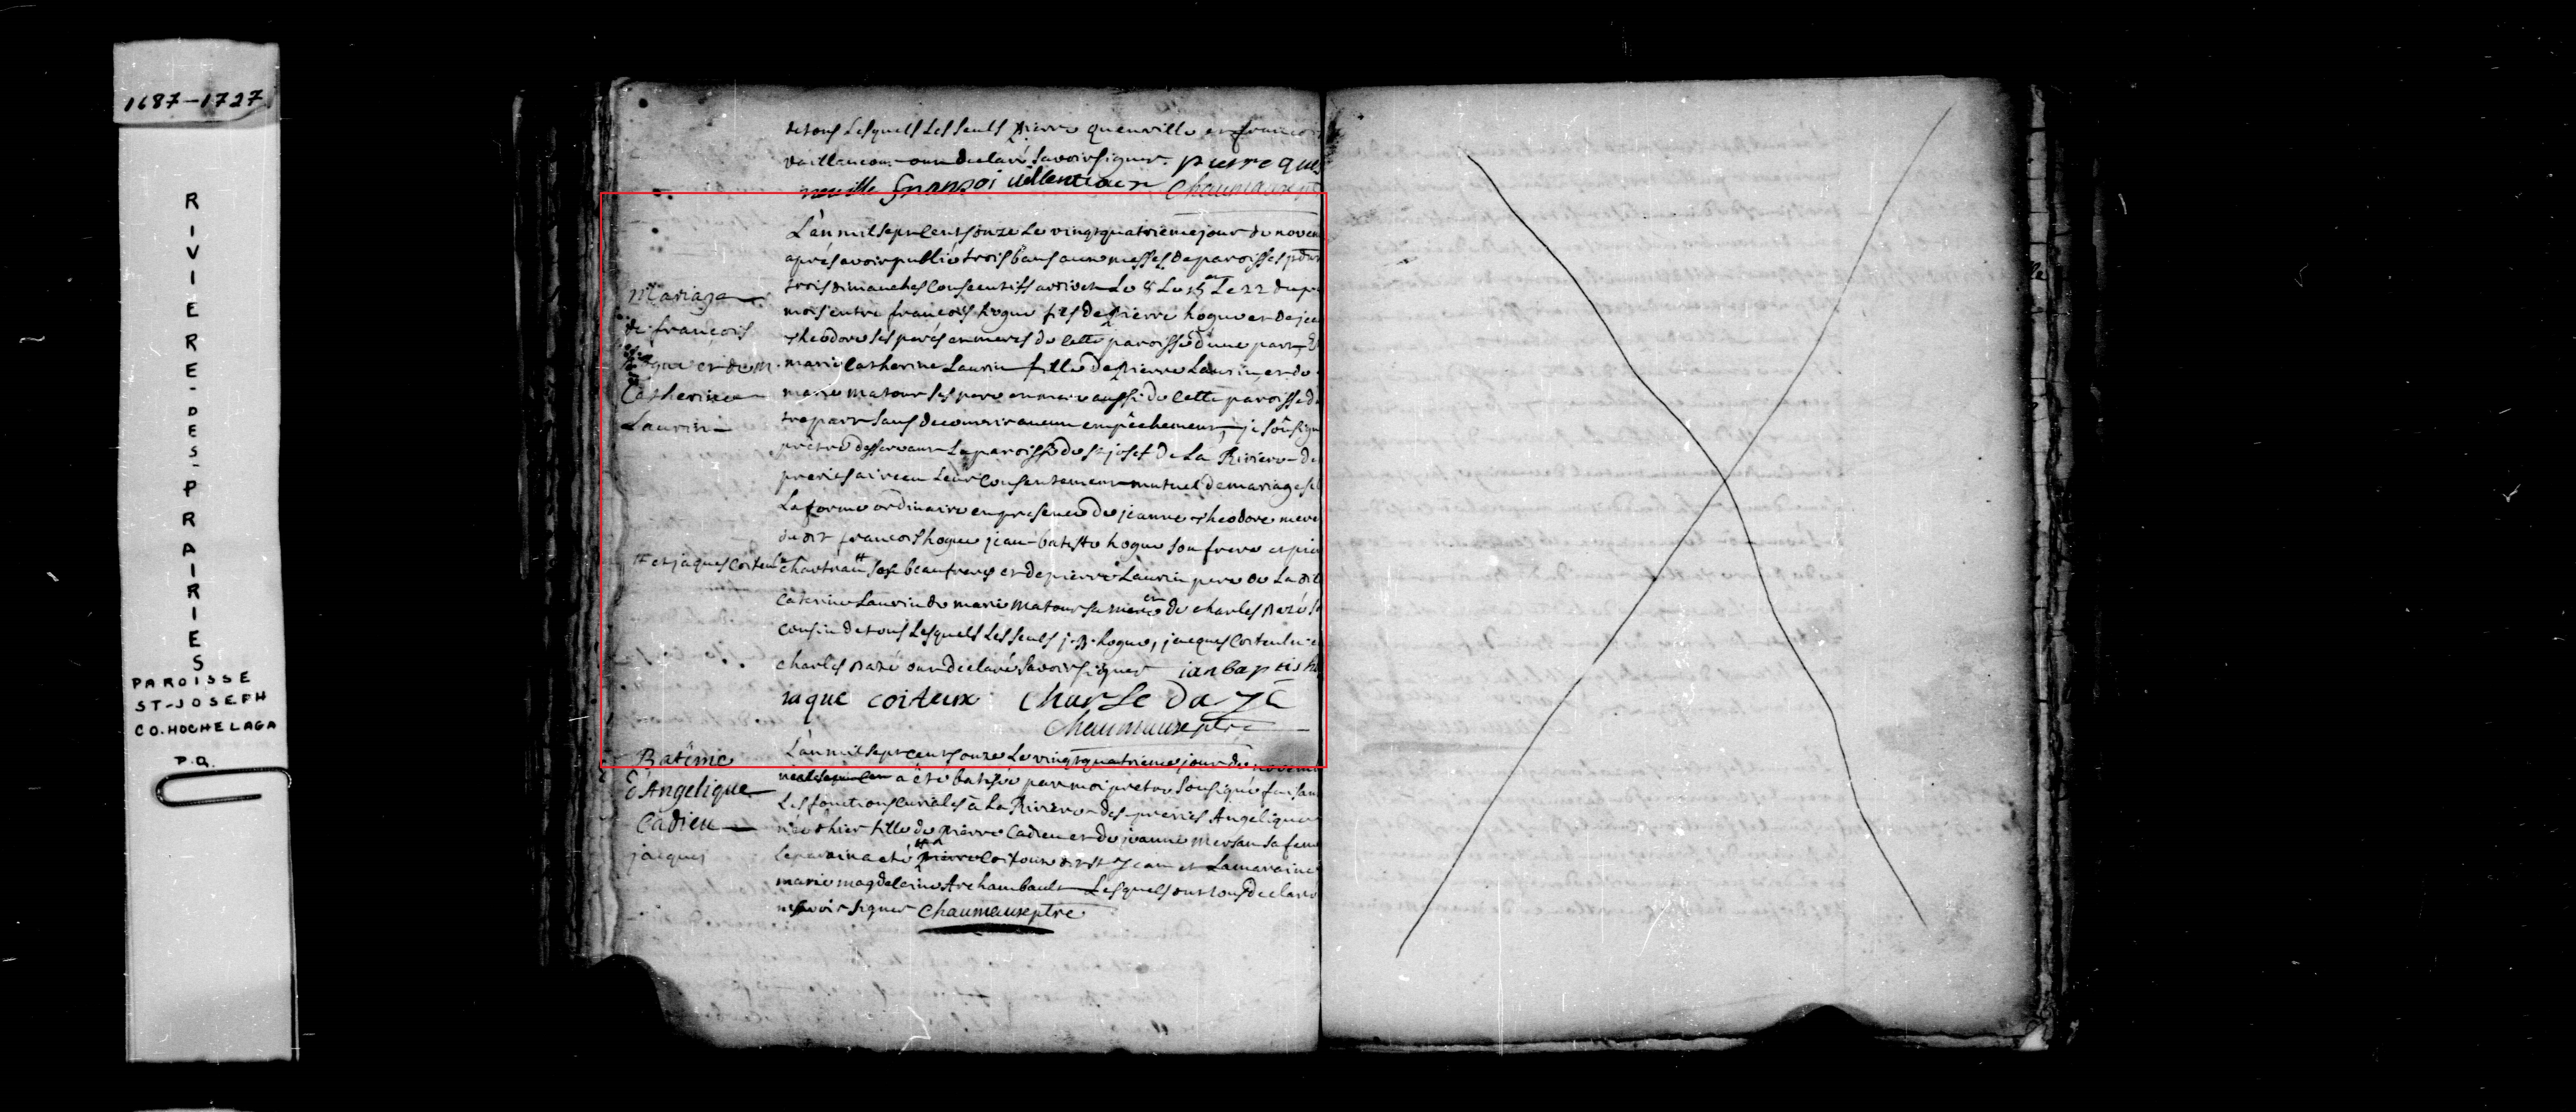 1687-1727
RIVIERE-DES-PRAIRIES
PAROISSE
ST-JOSEPH
CO. HOCHELAGA
P.Q.
de tous Lesquels Les seuls pierre quenville et francois
vaillancour ont declaré savoir signer. pierre que
neville fransoi Chaumaux ptre
L'an mil sept cents onze Le vingt quatrieme jour de novem
aprés avoir publié trois bans aux messes de paroisses
trois dimanches consecutifs Le 8 Le 15 et Le 22 du
mois entre francois hogue fils de pierre hogue et de je
Theodore ses peres et meres de cette paroisse d'une part, Et
marie Catherine Laurin fille de pierre Laurin, et de
marie matour ses pere et mere aussi de cette paroisse d
tre part sans decouvrir aucun empêchement, je sousign
prêtre desservant La paroisse de st josef de La Riviere-de
preries ai receu Leur consentement mutuel de mariage
La forme ordinaire en presence de jeanne Theodore mere
du dit francois hogue jean-batiste hogue son frere et
chartrain # beaufreres et de pierre Laurin pere de La dit
Caterine Laurin de marie matour sa mere et de charles dazé
cousin de tous Lesquels Les seuls j.B. hogue, jacques
charles dazé ont declaré savoir signer ian baptis h
iaque coiteux Charle Dazé
Chaumaux ptre
Mariage
de francois
hogue et de m.
Catherine
Laurin
# et jaques
Batême
d'Angelique
Cadieu
jacques
L'an mil sept cents onze Le vingt quatrieme jour de novem
a été batisée par moi pretre sousigné faisant
Les fonctions curiales à La Riviere-des-preries Angelique
née d'hier fille de pierre Cadieu et de jeanne mersan sa fem
Le parain a été # pierre dit st Jean et La maraine
marie magdeleine Archambault Lesquels ont tous declaré
ne savoir signer Chaumaux ptre